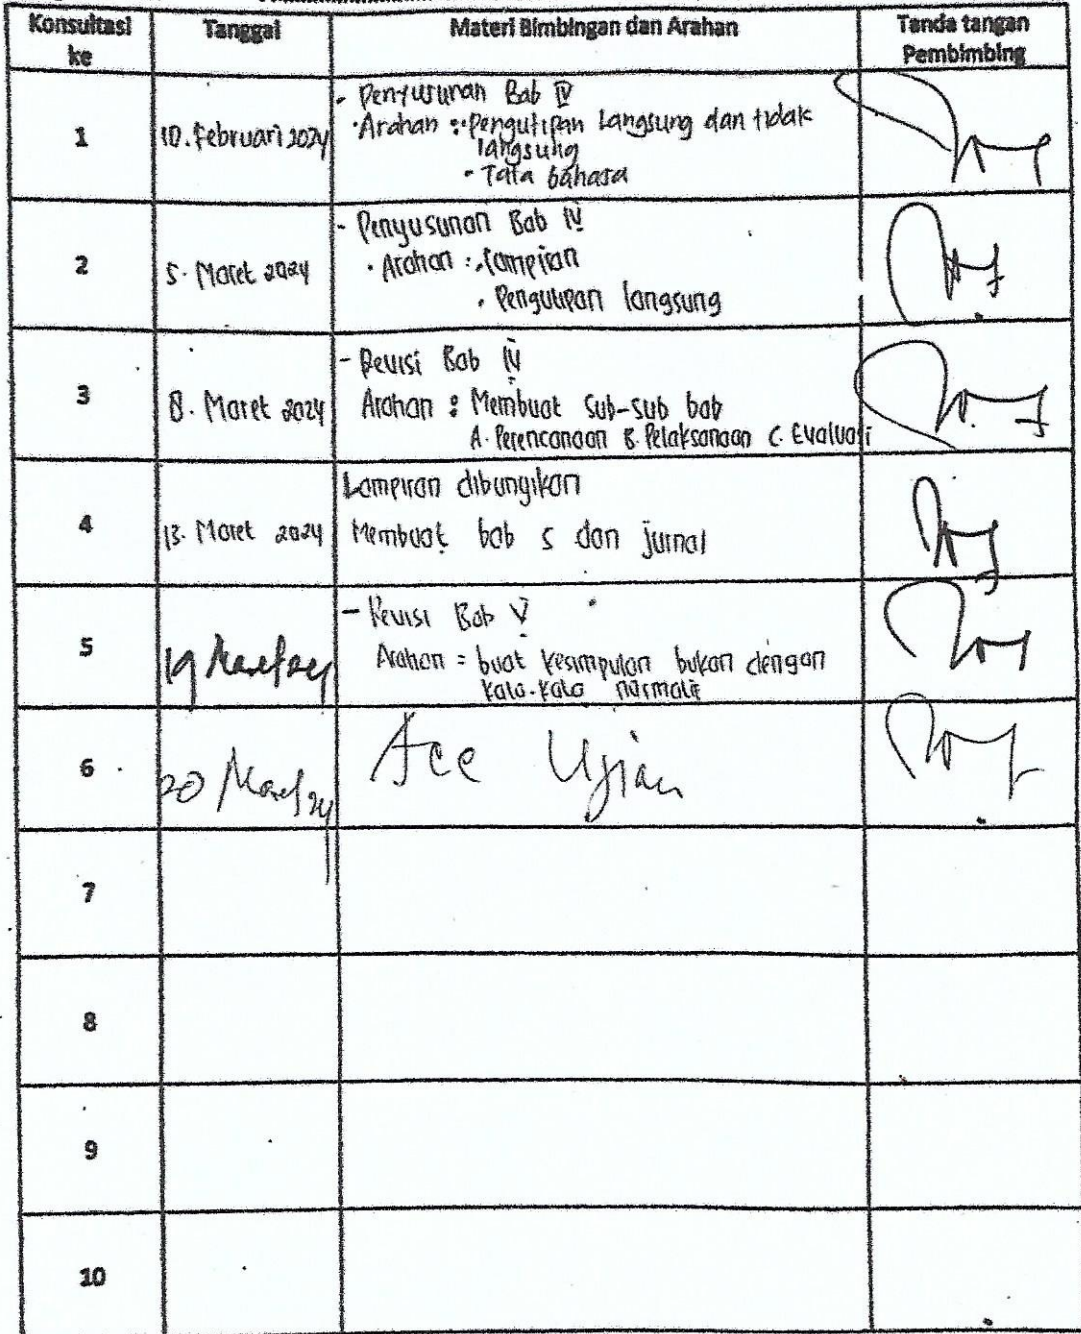 Konsultasi ke
Tanggal
Materi Bimbingan dan Arahan
Tanda tangan Pembimbing
1
10. Februari 2024
- Penyusunan Bab IV
• Arahan : • Pengutipan Langsung dan tidak
langsung
• Tata bahasa
2
5. Maret 2024
- Penyusunan Bab IV
• Arahan : • Lampiran
• Pengutipan langsung
3
8. Maret 2024
- Revisi Bab IV
Arahan : Membuat Sub-sub bab
A. Perencanaan B. Pelaksanaan C. Evaluasi
4
13. Maret 2024
Lampiran dibunyikan
Membuat bab 5 dan jurnal
5
19 Maret
- Revisi Bab V
Arahan = buat kesimpulan bukan dengan
kata-kata
6
20 Maret 24
Acc Ujian
7
8
9
10